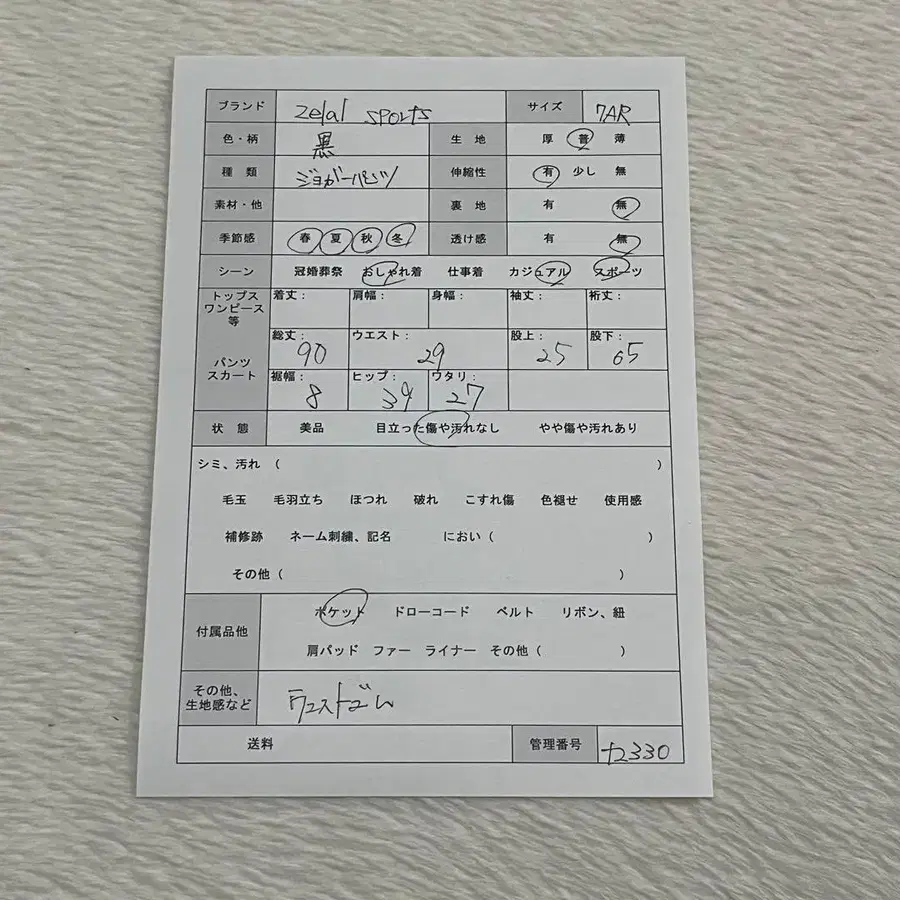 ブランド zelal sports サイズ 7AR
色・柄 黒 生地 厚 普 薄
種類 ジョガーパンツ 伸縮性 有 少し 無
素材・他 裏地 有 無
季節感 春 夏 秋 冬 透け感 有 無
シーン 冠婚葬祭 おしゃれ着 仕事着 カジュアル スポーツ
トップス
ワンピース
等
着丈： 肩幅： 身幅： 袖丈： 裄丈：
パンツ
スカート
総丈： ウエスト： 股上： 股下：
90 29 25 65
裾幅： ヒップ： ワタリ：
8 39 27
状態 美品 目立った傷や汚れなし やや傷や汚れあり
シミ、汚れ （ ）
毛玉 毛羽立ち ほつれ 破れ こすれ傷 色褪せ 使用感
補修跡 ネーム刺繍、記名 におい（ ）
その他（ ）
付属品他
ポケット ドローコード ベルト リボン、紐
肩パッド ファー ライナー その他（ ）
その他、
生地感など
ウエストゴム
送料 管理番号 t2330